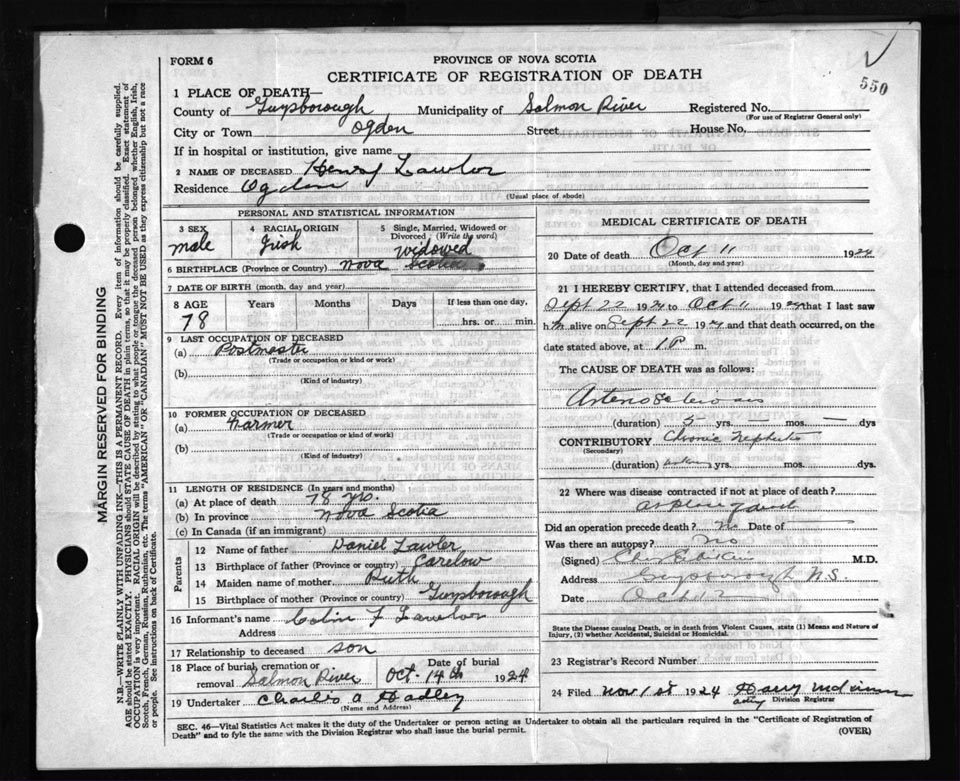 550
FORM 6
PROVINCE OF NOVA SCOTIA
CERTIFICATE OF REGISTRATION OF DEATH
1 PLACE OF DEATH—
County of Guysborough Municipality of Salmon River Registered No.
(For use of Registrar General only)
City or Town Ogden Street House No.
If in hospital or institution, give name
2 NAME OF DECEASED Henry Lawlor
Residence Ogden
(Usual place of abode)
PERSONAL AND STATISTICAL INFORMATION
3 SEX 4 RACIAL ORIGIN 5 Single, Married, Widowed or Divorced (Write the word)
male Irish widowed
6 BIRTHPLACE (Province or Country) Nova Scotia
7 DATE OF BIRTH (month, day and year)
8 AGE Years Months Days If less than one day,
78 hrs. or min.
9 LAST OCCUPATION OF DECEASED
(a) Postmaster
(Trade or occupation or kind or work)
(b)
(Kind of industry)
10 FORMER OCCUPATION OF DECEASED
(a) Farmer
(Trade or occupation or kind of work)
(b)
(Kind of industry)
11 LENGTH OF RESIDENCE (In years and months)
(a) At place of death 78 yrs.
(b) In province Nova Scotia
(c) In Canada (if an immigrant)
Parents
12 Name of father Daniel Lawler
13 Birthplace of father (Province or country) Carelow
14 Maiden name of mother Ruth
15 Birthplace of mother (Province or country) Guysborough
16 Informant's name Colin F Lawlor
Address
17 Relationship to deceased son
18 Place of burial, cremation or removal Salmon River Date of burial Oct. 14th 1924
19 Undertaker Charles A Hadley
(Name and Address)
MEDICAL CERTIFICATE OF DEATH
20 Date of death Oct 11 1924
(Month, day and year)
21 I HEREBY CERTIFY, that I attended deceased from
Sept 22 1924 to Oct 11 1924 that I last saw
him alive on Sept 22 1924 and that death occurred, on
date stated above, at 1 P m.
The CAUSE OF DEATH was as follows:
Arteriosclerosis
(duration) 5 yrs. — mos. — dys
CONTRIBUTORY Chronic Nephritis
(Secondary)
(duration) yrs. mos. dys.
22 Where was disease contracted if not at place of death?
at place of death
Did an operation precede death? No Date of
Was there an autopsy? No
(Signed) M.D.
Address Guysborough N.S.
Date Oct 12
State the Disease causing Death, or in death from Violent Causes, state (1) Means and Nature of Injury, (2) whether Accidental, Suicidal or Homicidal.
23 Registrar's Record Number
24 Filed Nov 1st 1924 Harry
acty Division Registrar
SEC. 46—Vital Statistics Act makes it the duty of the Undertaker or person acting as Undertaker to obtain all the particulars required in the "Certificate of Registration of
Death" and to fyle the same with the Division Registrar who shall issue the burial permit.
(OVER)
MARGIN RESERVED FOR BINDING
N.B.—WRITE PLAINLY WITH UNFADING INK—THIS IS A PERMANENT RECORD. Every item of information should be carefully supplied.
AGE should be stated EXACTLY. PHYSICIANS should STATE CAUSE OF DEATH in plain terms, so that it may be properly classified. Exact statement of
OCCUPATION is very important. RACIAL ORIGIN will be described by stating to what people or tongue the deceased person belonged whether English, Irish,
Scotch, French, German, Russian, Ruthenian, etc. The terms "AMERICAN" OR "CANADIAN" MUST NOT BE USED as they express citizenship but not a race
or people. See instructions on back of Certificate.